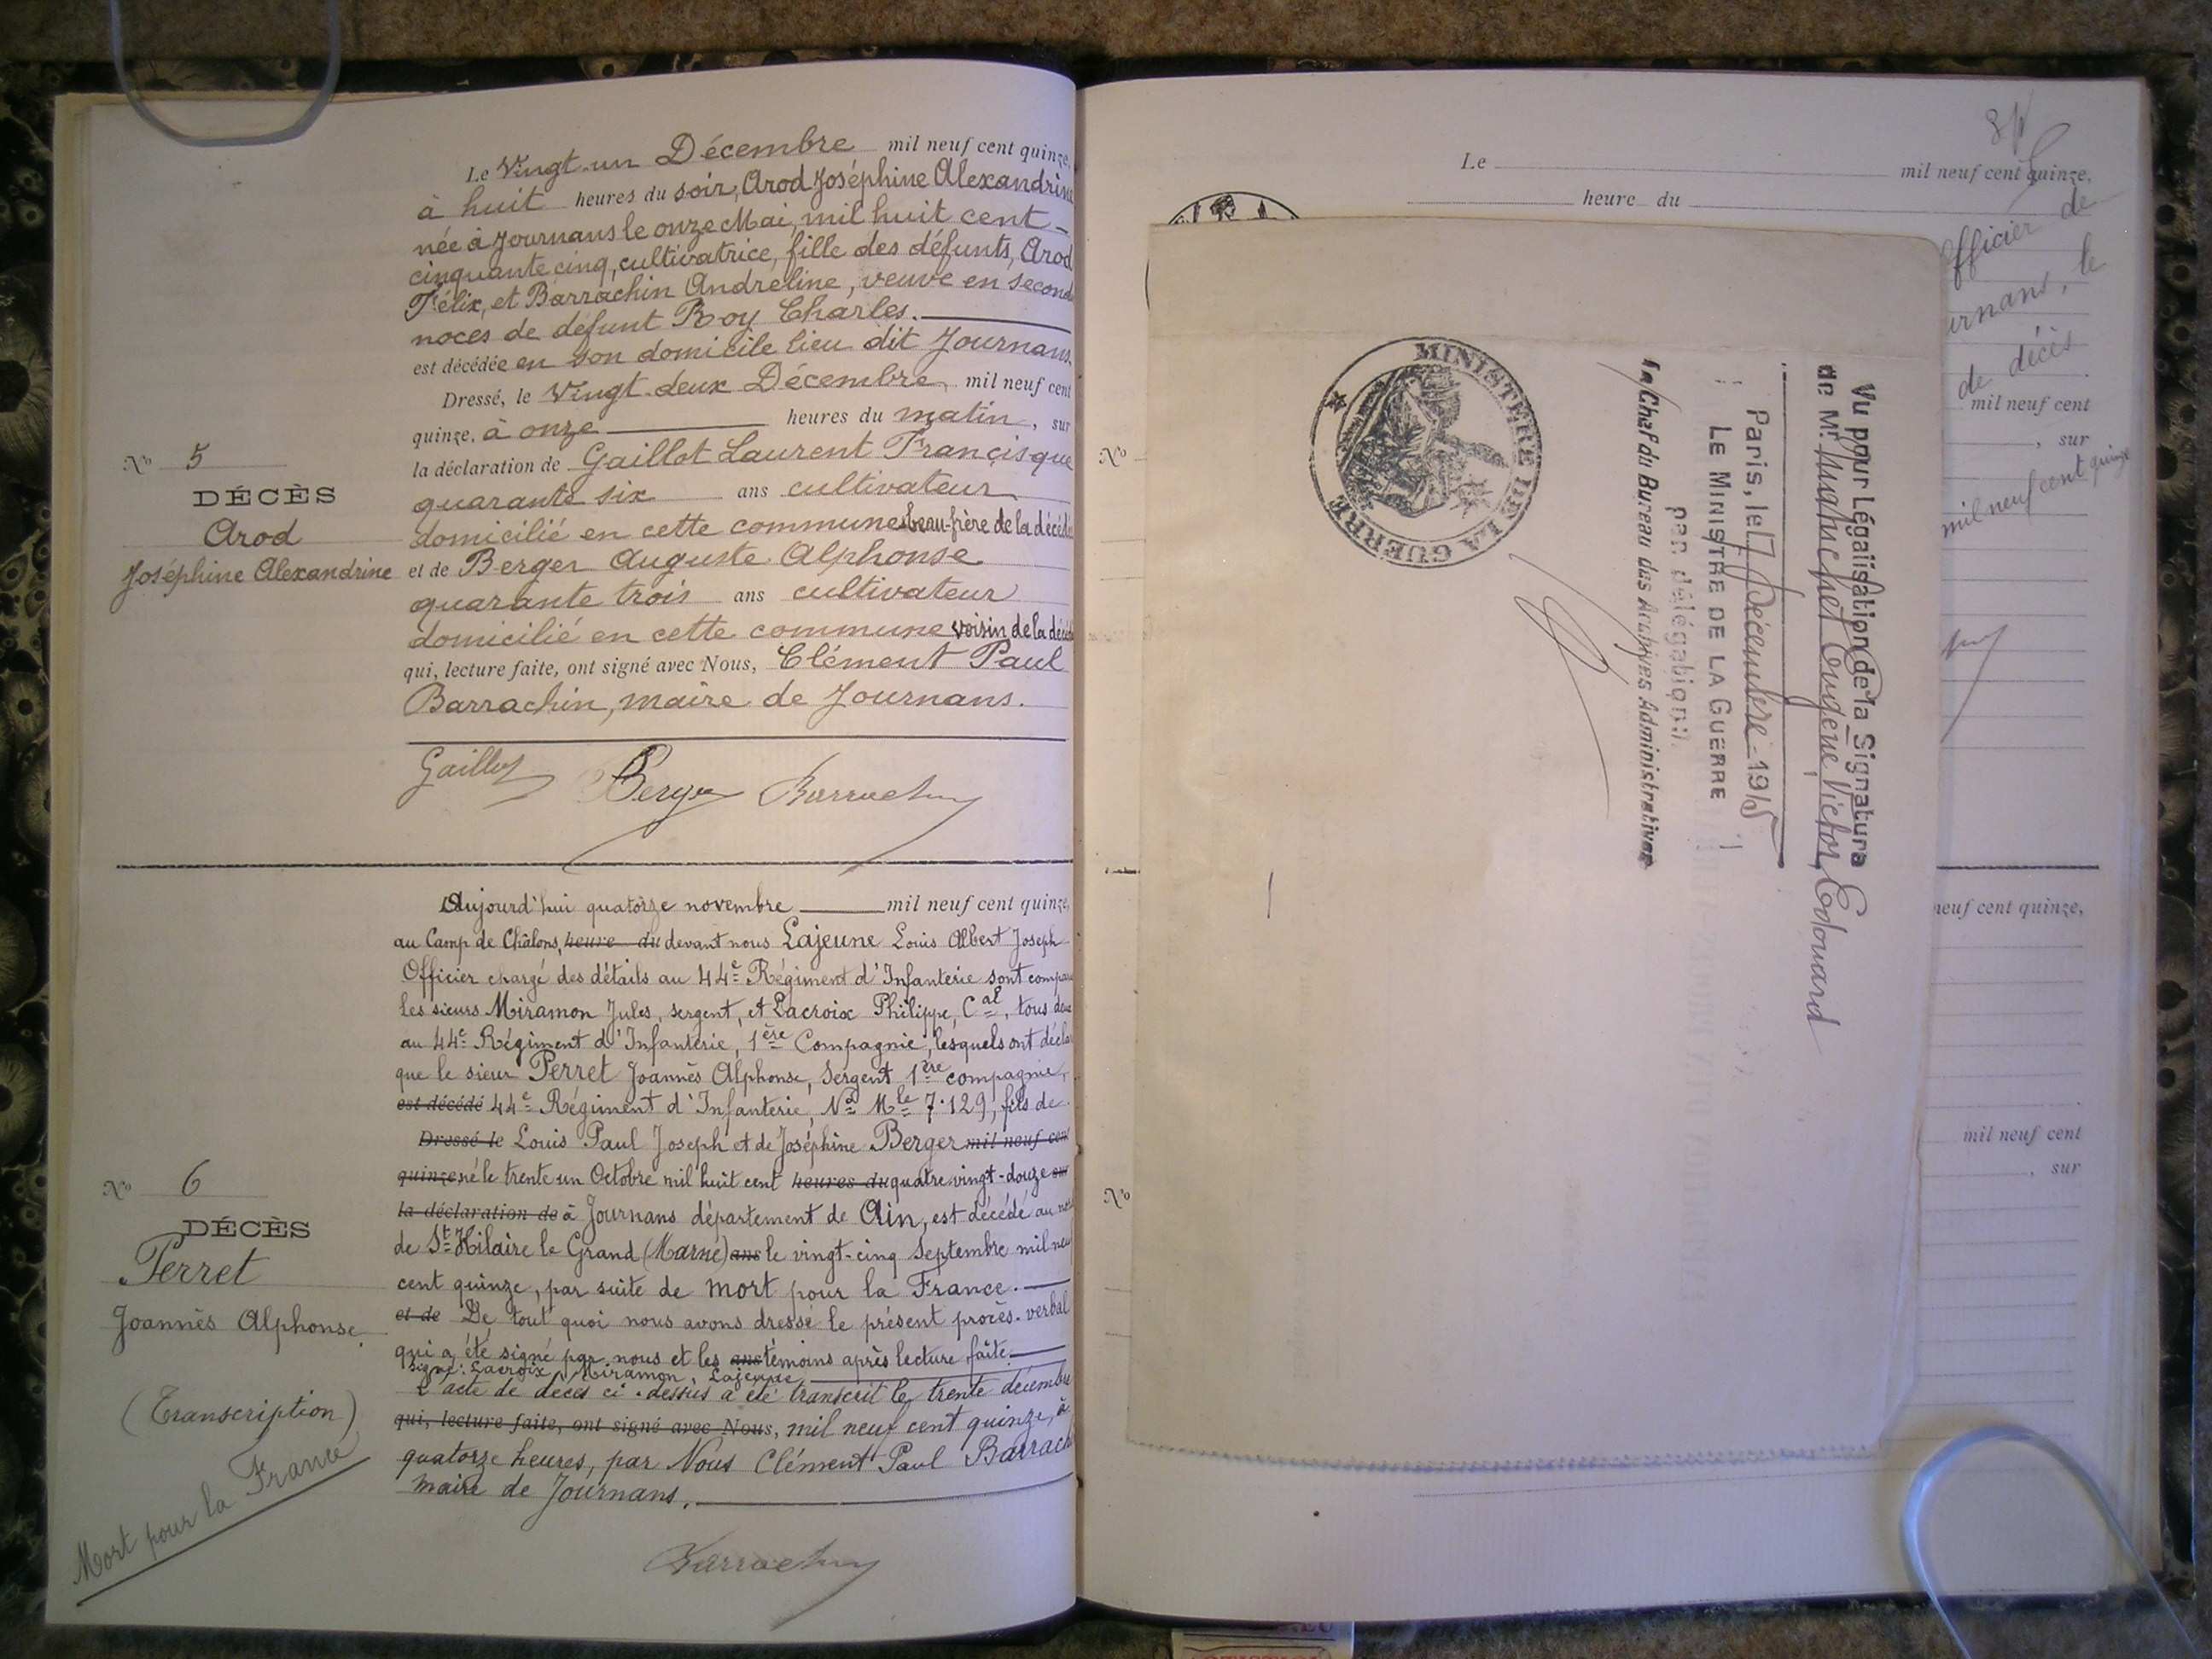 Le Vingt-un Décembre mil neuf cent quinze,
à huit heures du soir, Arod Joséphine Alexandrine
née à Journans le onze Mai, mil huit cent-
cinquante cinq, cultivatrice, fille des défunts, Arod
Félix, et Barrachin Andréline, veuve en second
noces de défunt Roy Charles.
est décédée en son domicile lieu dit Journans.
Dressé, le Vingt-deux Décembre, mil neuf cent
quinze, à onze heures du matin, sur
la déclaration de Gaillot Laurent Françisque
quarante six ans cultivateur
domicilié en cette commune beau-frère de la décédé
et de Berger Auguste Alphonse
quarante trois ans cultivateur
domicilié en cette commune voisin de la décéd
qui, lecture faite, ont signé avec Nous, Clément Paul
Barrachin, maire de Journans.
Gaillot Berger Barrachin
No 5
DÉCÈS
Arod
Joséphine Alexandrine
Aujourd'hui quatorze novembre mil neuf cent quinze,
au Camp de Châlons, heure du devant nous Lajeune Louis Albert Joseph
Officier chargé des détails au 44e Régiment d'Infanterie sont compar
les sieurs Miramon Jules, sergent, et Lacroix Philippe, Cal, tous deux
au 44e Régiment d'Infanterie, 1ère Compagnie, lesquels ont décla
que le sieur Perret Joannès Alphonse, Sergent 1ère compagnie,
est décédé 44e Régiment d'Infanterie, No Mle 7.129, fils de
Dressé le Louis Paul Joseph et de Joséphine Berger mil neuf cent
quinze né le trente un Octobre mil huit cent heures du quatre vingt-douze sur
la déclaration de à Journans département de Ain, est décédé au nord
de St Hilaire le Grand (Marne) ans le vingt-cinq Septembre mil neuf
cent quinze, par suite de mort pour la France.
et de De tout quoi nous avons dressé le présent procès-verbal
qui a été signé par nous et les ans témoins après lecture faite.
Signé: Lacroix, Miramon, Lajeune.
L'acte de décès ci-dessus a été transcrit le trente décembre
qui, lecture faite, ont signé avec Nous, mil neuf cent quinze, à
quatorze heures, par Nous Clément Paul Barrach
maire de Journans.
Barrachin
No 6
DÉCÈS
Perret
Joannès Alphonse
(Transcription)
Mort pour la France
Le mil neuf cent quinze,
heure du
Officier de
urnans, le
de décès
mil neuf cent
, sur
mil neuf cent quinze
No
neuf cent quinze,
mil neuf cent
, sur
No
Vu pour Légalisation de la Signature
de Mr Eugène Victor Edouard
Paris, le 17 Décembre 1915
LE MINISTRE DE LA GUERRE
par délégation:
Le Chef du Bureau des Archives Administratives
MINISTERE DE LA GUERRE